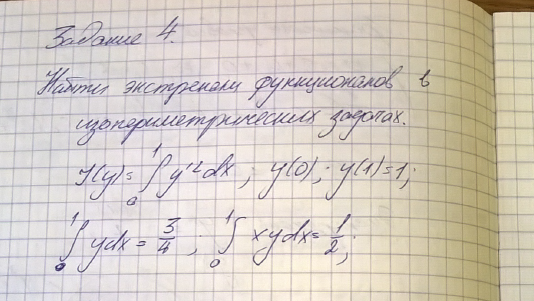 Задание 4.
Найти экстремали функционалов в
изопериметрических задачах.
J(y) = ∫₀¹ y'² dx ; y(0) ; y(1) = 1 ;
∫₀¹ y dx = 3/4 ; ∫₀¹ xy dx = 1/2 ;